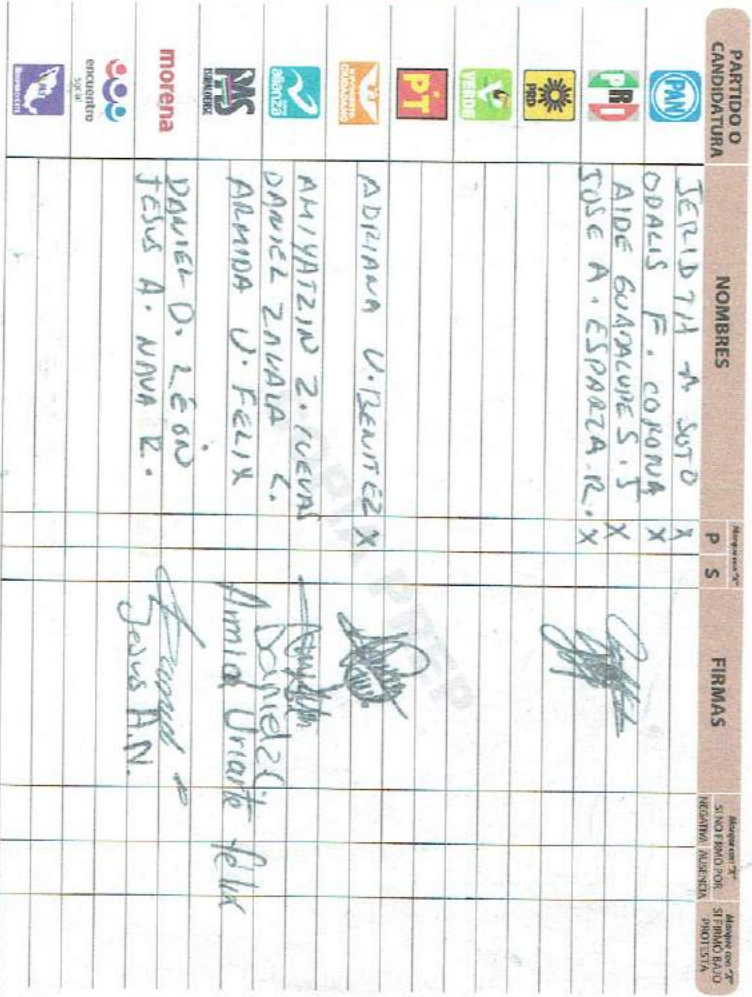 PARTIDO O CANDIDATURA NOMBRES Marque con "X" P S FIRMAS Marque con "X" SI NO FIRMÓ POR NEGATIVA AUSENCIA Marque con "X" SI FIRMÓ BAJO PROTESTA
PAN JERIDTH A SOTO X
ODALIS F. CORONA X
PRI AIDE GUADALUPE S. J X
JOSE A. ESPARZA. R. X
PRD
VERDE
PT
MOVIMIENTO CIUDADANO ADRIANA V. BENITEZ X
nueva alianza AMIYATZIN Z. CUEVAS
DANIEL ZAVALA C. Daniel Z C
PAS SINALOENSE ARMIDA U. FELIX Armida Uriarte felix
morena DANIEL D. LEÓN Daniel
JESUS A. NAVA R. Jesus A.N.
encuentro social
COPIA PREP